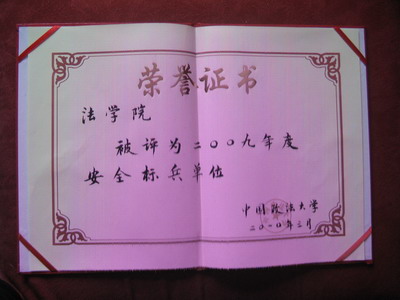 荣誉证书
法学院
被评为二〇〇九年度
安全标兵单位
中国政法大学
二〇一〇年三月